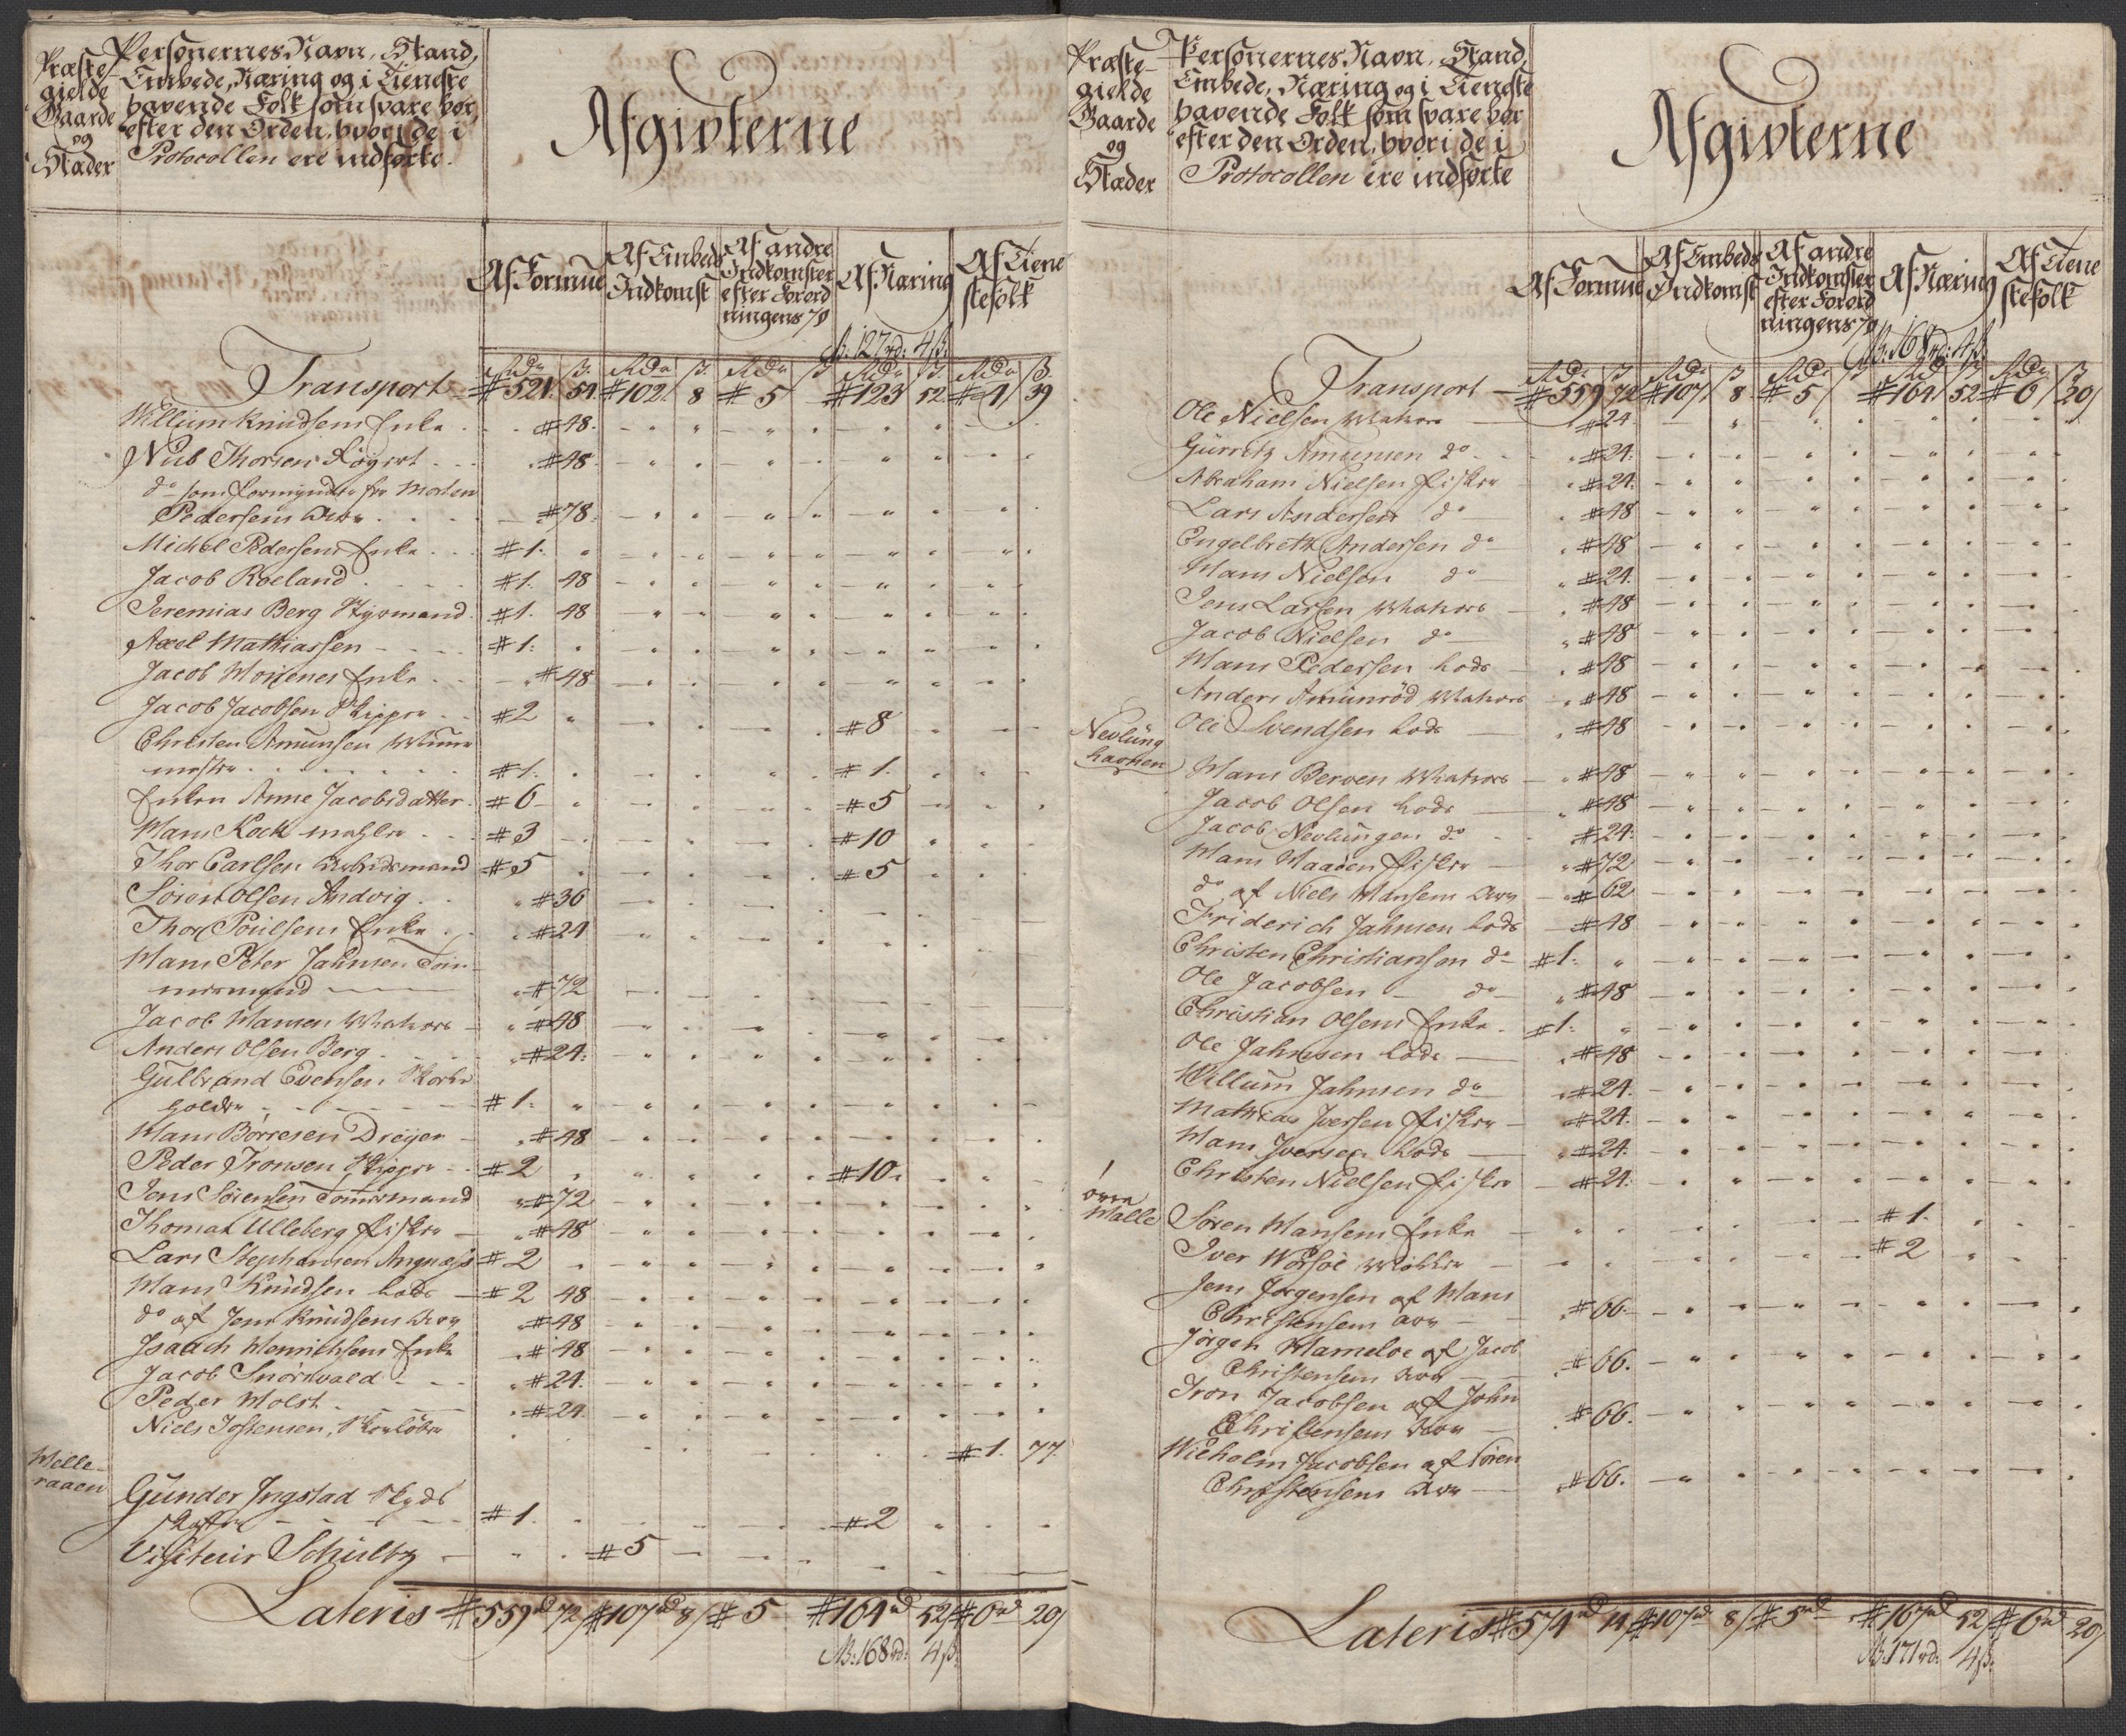 Præste-
gielde
Gaarde
og
Stæder
Personernes Navn, Stand,
Embede, Næring og i Tieneste
havende Folk som svare her,
efter den Orden, hvori de i
Protocollen ere indførte.
Afgivterne
Af Formue
Af Embeds
Indkomst
Af andre
Indkomster
efter Forord
ningens 7 §
Af Næring
Af Tiene
stefolk
N: 127 rd: 4 ß:
Rdr ß. Rdr ß. Rdr ß Rdr ß Rdr ß.
Transport # 521. 54 # 102. 8 # 5 # 123 52 # 4 39
Willum Knudsens Enke # 48.
Niels Thorsens Røgert # 48.
do som Formynder for Morten
Pedersens Arv # 78.
Michel Pedersens Enke # 1.
Jacob Roeland # 1. 48
Jeremias Berg Styrmand # 1. 48
Axel Mathiassen # 1.
Jacob Mortenes Enke # 48
Jacob Jacobsen Skipper # 2 # 8
Christen Amunsen
mester # 1. # 1.
Enken Anne Jacobsdatter # 6 # 5
Hans Kock mahler # 3 # 10
Thor Carlsen Arbeidsmand # 5 # 5
Søren Olsen Andvig # 36
Thor Poulsens Enke # 24
Hans Peter Jahnsen Tøm-
mermand # 72
Jacob Hansen Matros # 48
Anders Olsen Berg # 24.
Gulbrand Evensen
holder # 1.
Hans Børresen Dreyer # 48
Peder Tronsen Skipper # 2 # 10.
Jens Sørensen Tømermand # 72
Thomas Ulleberg Fisker # 48
Lars Stephansen Angnæs # 2
Hans Knudsen Lods # 2 48
do af Jens Knudsens Arv # 48
Isaach Henrichsens Enke # 48
Jacob Snørsvald # 24.
Peder Holst # 24.
Niels Jostensen, # 1. 77.
Helle-
raaen
Gunder Ingstad Skyds
skaffer # 1. # 2
Visiteur Schultz # 5
Lateris # 559 rd 72 # 107 rd 8 # 5 # 164 rd 52 # 6 rd 20
N: 168 rd: 4 ß:
Præste-
gielde
Gaarde
og
Stæder
Personernes Navn, Stand,
Embede, Næring og i Tieneste
havende Folk som svare her
efter den Orden, hvori de i
Protocollen ere indførte
Afgivterne
Af Formue
Af Embeds
Indkomst
Af andre
Indkomster
efter Forord
ningens 7 §
Af Næring
Af Tiene
stefolk
N: 168 rd: 4 ß:
Rdr ß Rdr ß Rdr ß Rd ß Rdr ß
Transport # 559 72 # 107 8 # 5 # 164 52 # 6 20
Ole Nielsen Matros # 24.
Gurretz Amunsen do # 24.
Abraham Nielsen Fisker # 24.
Lars Andersen do # 48
Engelbreth Andersen do # 48
Hans Nielsen do # 24.
Jens Larsen Matros # 48
Jacob Nielsen do # 48
Hans Pedersen Lods # 48
Anders Amunrød Matros # 48
Nevlung
havnen
Ole Svendsen Lods # 48
Hans Berven Matros # 48
Jacob Olsen Lods # 48
Jacob Nevlungen do # 24.
Hans Haaden Fisker # 72
do af Niels Hansens Arv # 62
Friderich Jahnsen Lods # 48
Christen Christiansen do # 1.
Ole Jacobsen do # 48
Christian Olsens Enke # 1.
Ole Jahnsen Lods # 48
Willum Jahnsen do # 24.
Mathias Iversen Fisker # 24.
Hans Iversen Lods # 24.
Christen Nielsen Fisker # 24.
Øvre
Halle
Søren Hansens Enke # 1.
Iver Worsøe Møller # 2
Jens Jørgensen af Hans
Christensens Arv # 66.
Jørgen Hameloe af Jacob
Christensens Arv # 66.
Tron Jacobsen af John
Christensens Arv # 66.
Wilhelm Jacobsen af Søren
Christensens Arv # 66.
Lateris # 574 rd 14 # 107 rd 8 # 5 rd # 167 rd 52 # 6 rd 20
N: 171 rd: 4 ß: